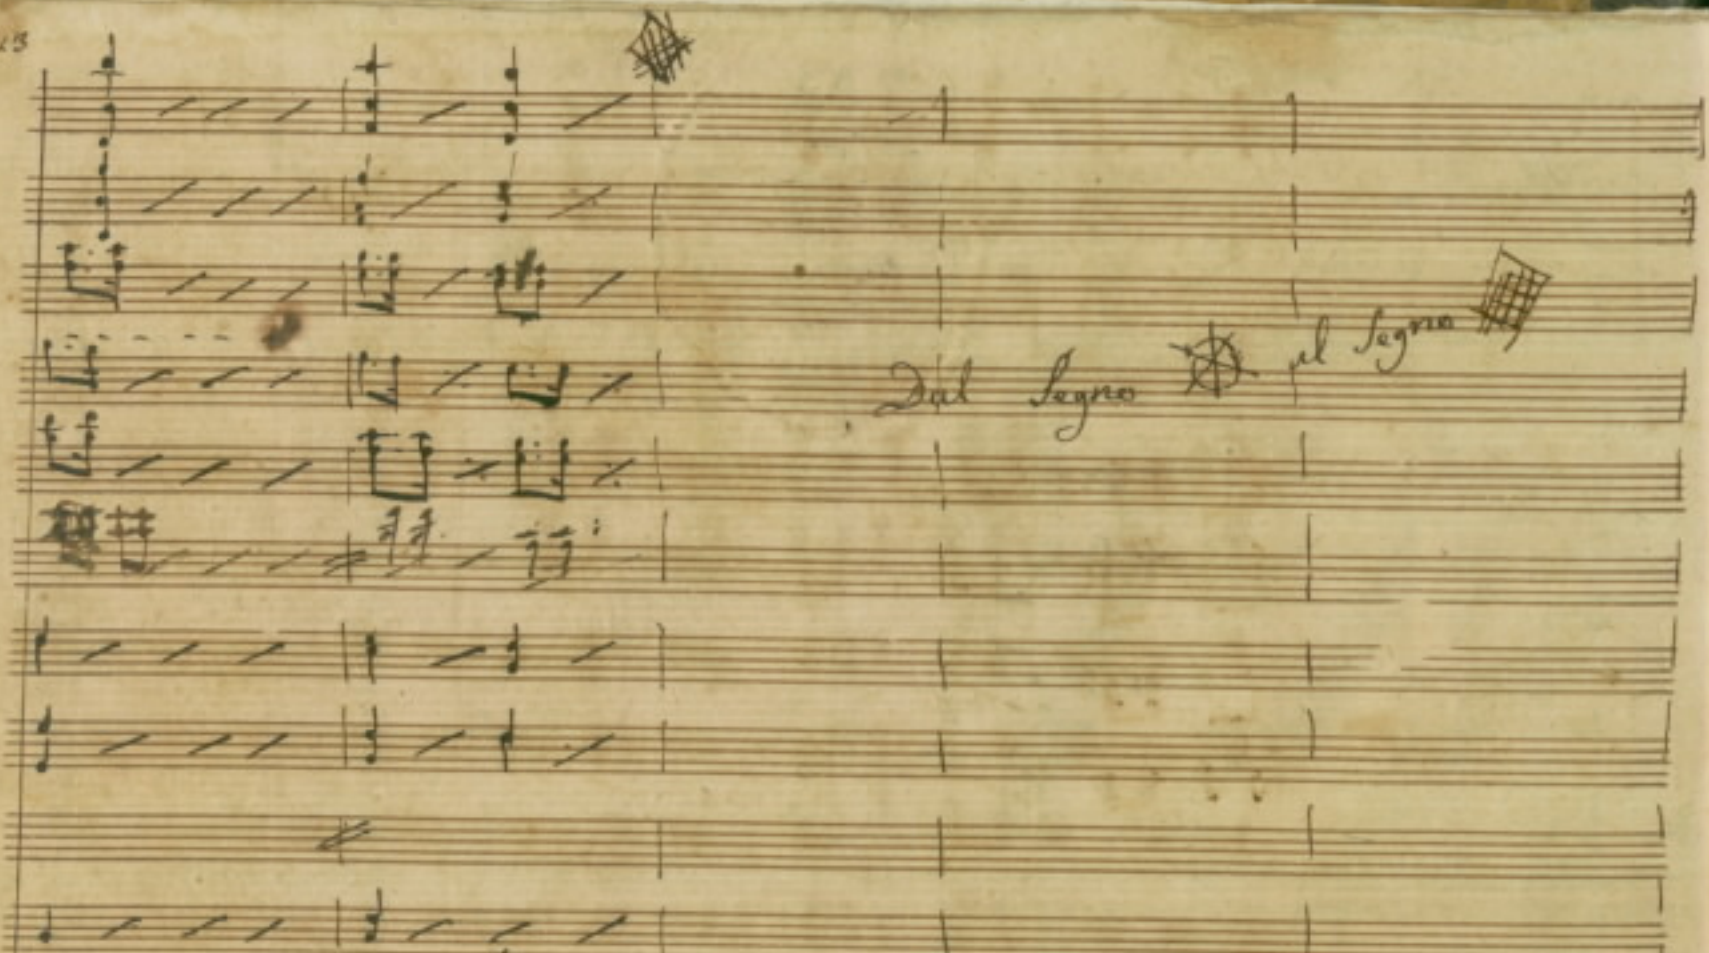 Dal Segno al Segno